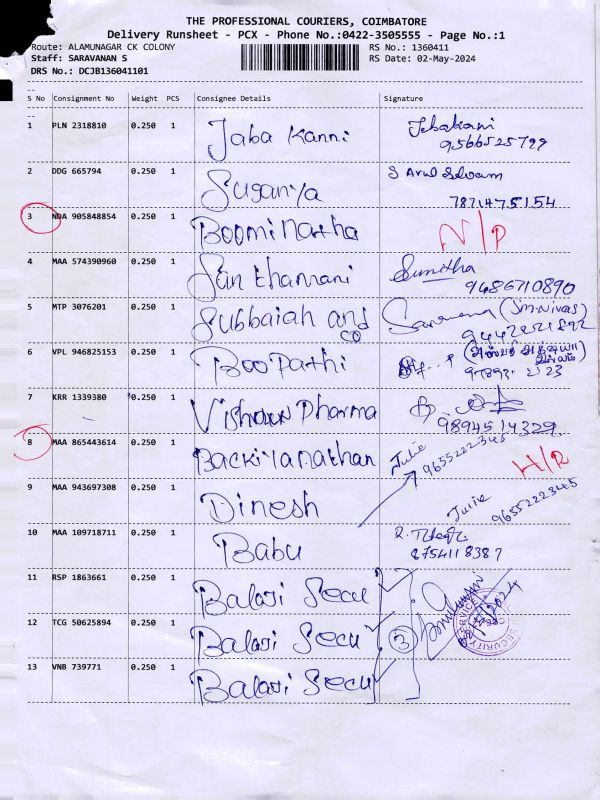 THE PROFESSIONAL COURIERS, COIMBATORE
Delivery Runsheet - PCX - Phone No.:0422-3505555 - Page No.:1
Route: ALAMUNAGAR CK COLONY RS No.: 1360411
Staff: SARAVANAN S RS Date: 02-May-2024
DRS No.: DCJB136041101
S No Consignment No Weight PCS Consignee Details Signature
1 PLN 2318810 0.250 1 Jaba Kanni
9566525799
2 DDG 665794 0.250 1 Suganya S Arul Selvam
7871475154
3 NDA 905848854 0.250 1 Boomi Natha N/P
4 MAA 574390960 0.250 1 San thamani Sumitha
9486710890
5 MTP 3076201 0.250 1 Subbaiah and co
6 VPL 946825153 0.250 1 Boopathi
7 KRR 1339380 0.250 1 Dharma
9894514329
8 MAA 865443614 0.250 1 Backiyanathan Julie
9655222345
9 MAA 943697308 0.250 1 Dinesh Julie
9655222345
10 MAA 109718711 0.250 1 Babu
8754118387
11 RSP 1863661 0.250 1 Balaji Secu
12 TCG 50625894 0.250 1 Balaji Secu 3
13 VNB 739771 0.250 1 Balaji Secu